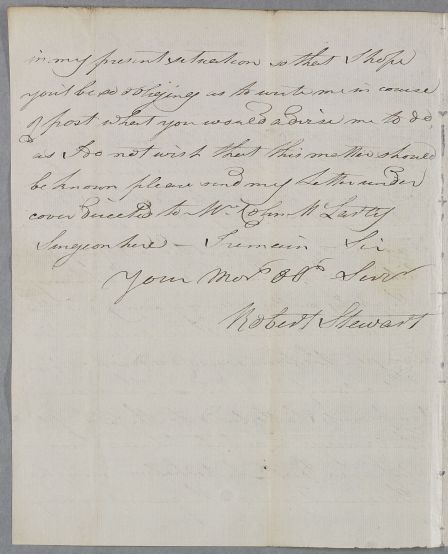 in my present setuation is that I hope
you'l be so obliging as to write me in course
of post what you would advise me to do
as I do not wish that this matter should
be known please send my letter under
cover directed to Mr John McLarty
Surgeon here - I remain - Sir
Your Mos^t Ob^t Serv^t
Robert Stewart